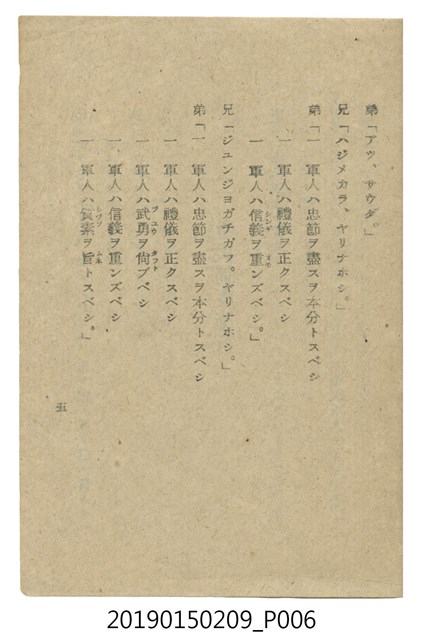 弟「アツ、サウダ。」
兄「ハジメカラ、ヤリナホシ。」
弟「一 軍人ハ忠節ヲ盡スヲ本分トスベシ
一 軍人ハ禮儀ヲ正クスベシ
一 軍人ハ信義ヲ重ンズベシ。」
兄「ジユンジヨガチガフ。ヤリナホシ。」
弟「一 軍人ハ忠節ヲ盡スヲ本分トスベシ
一 軍人ハ禮儀ヲ正クスベシ
一 軍人ハ武勇ヲ尙ブベシ
一 軍人ハ信義ヲ重ンズベシ
一 軍人ハ質素ヲ旨トスベシ。」
五
20190150209_P006